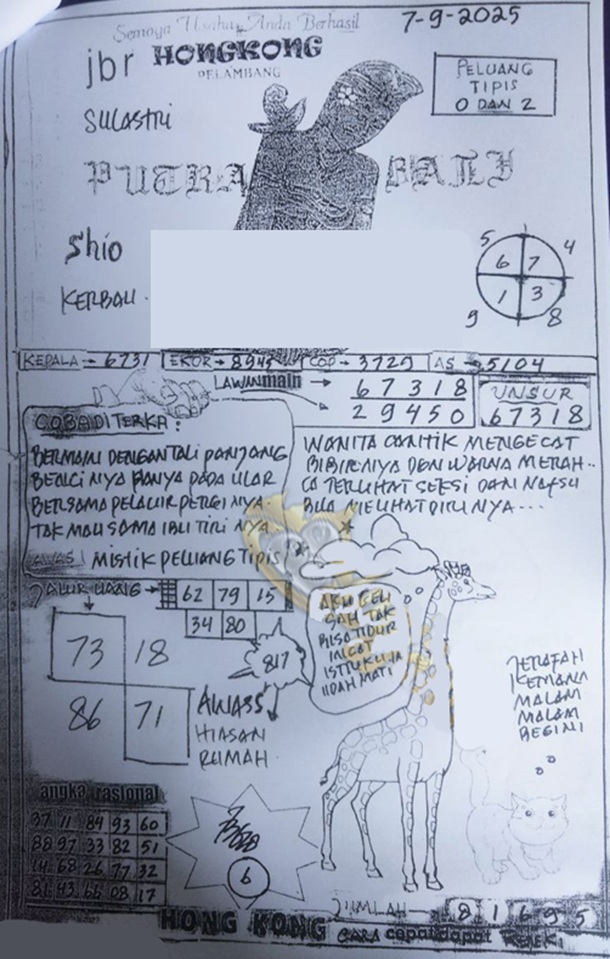 Semoga Usaha Anda Berhasil
7-9-2025
jbr HONGKONG
PELAMBANG
PELUANG
TIPIS
0 DAN 2
SULASTRI
PUTRA BALI
Shio
KERBAU
5 4
6 7
1 3
9 8
KEPALA → 6731 EKOR → 8945 COP → 3729 AS → 5104
LAWIN main → 67318
29450
UNSUR
67318
COBA DITERKA :
BERMAIN DENGAN TALI PANJANG
BENCI NYA HANYA PADA ULAR
BERSAMA PELAUR PERGI NYA
TAK MAU SAMA IBU TIRI NYA
AWAS! MISTIK PELUANG TIPIS!
WANITA CANTIK MENGECAT
BIBIRNYA DGN WARNA MERAH..
IA TERLIHAT SEKSI DAN NAFSU
BILA MELIHAT DIRI NYA...
JALUR UANG → 62 79 15
34 80
73 18
86 71
817
AWASS
HIASAN
RUMAH
AKU GELI
SAH TAK
BISA TIDUR
INGAT
ISTRIKU YA
UDAH MATI
JERAPAH
KEMANA
MALAM
MALAM
BEGINI
angka rasional
37 11 84 93 60
88 97 33 82 51
14 68 26 77 32
81 43 66 08 17
6
JUMLAH → 8 1 6 9 5
HONG KONG CARA cepat dapat REJEKI